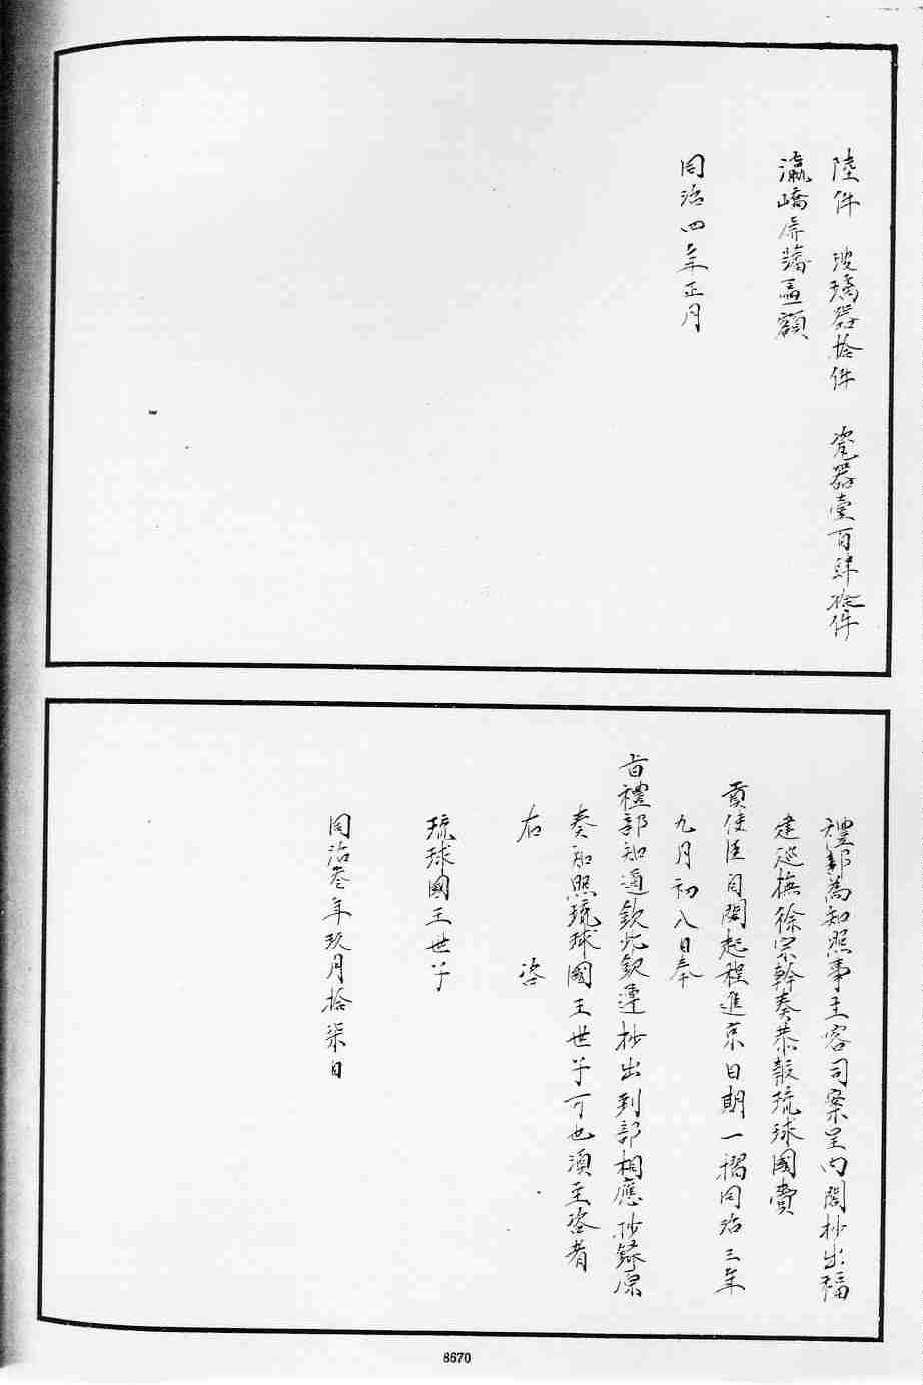 陸件　玻璃器拾件　瓷器壹百肆拾件
瀛嶠屏藩匾一額
同治四年正月
禮部為知照事主客司案呈內閣抄出福
建巡撫徐宗幹奏恭報琉球國賫
貢使臣自閩起程進京日期一摺同治三年
九月初八日奉
旨禮部知道欽此欽遵抄出到部相應抄錄原
奏知照琉球國王世子可也須至咨者
右　　　咨
琉球國王世子
同治叁年玖月拾柒日
8670